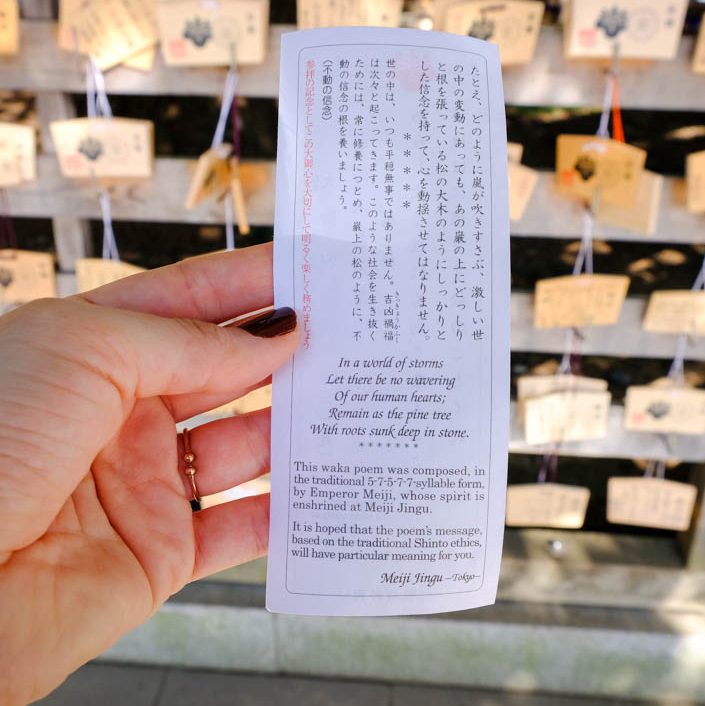 たとえ、どのように嵐が吹きすさぶ、激しい世
の中の変動にあっても、あの巌の上にどっしり
と根を張っている松の大木のようにしっかりと
した信念を持って、心を動揺させてはなりません。
＊＊＊＊＊
世の中は、いつも平穏無事ではありません。吉凶禍福
きっきょうかふく
は次々と起こってきます。このような社会を生き抜く
ためには、常に修養につとめ、巌上の松のように、不
動の信念の根を養いましょう。
〈不動の信念〉
参拝の記念としてこの大御心を大切にして明るく楽しく務めましょう
In a world of storms
Let there be no wavering
Of our human hearts;
Remain as the pine tree
With roots sunk deep in stone.
*******
This waka poem was composed, in
the traditional 5-7-5-7-7-syllable form,
by Emperor Meiji, whose spirit is
enshrined at Meiji Jingu.
It is hoped that the poem's message,
based on the traditional Shinto ethics,
will have particular meaning for you.
Meiji Jingu —Tokyo—